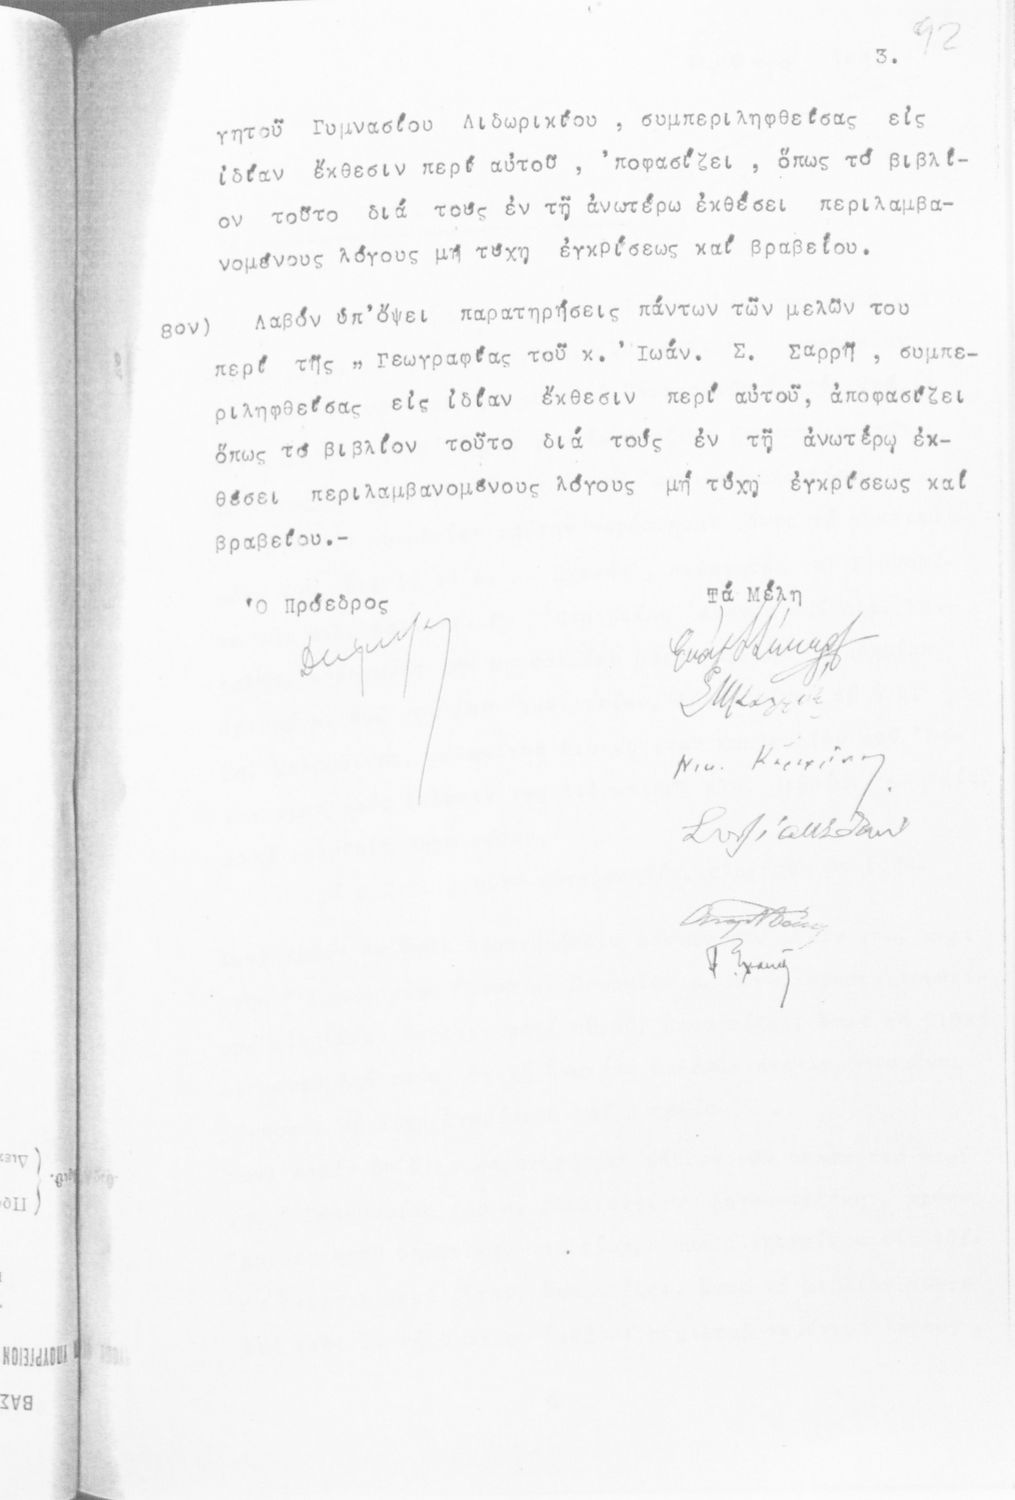 92
3.
γητοῦ Γυμνασίου Λιδωρικίου , συμπεριληφθείσας εἰς
ἰδίαν ἔκθεσιν περί αὐτοῦ , 'ποφασίζει , ὅπως τό βιβλί-
ον τοῦτο διά τούς ἐν τῇ ἀνωτέρω ἐκθέσει περιλαμβα-
νομένους λόγους μή τύχη ἐγκρίσεως καί βραβείου.
8ον) Λαβόν ὑπ'ὄψει παρατηρήσεις πάντων τῶν μελῶν του
περί τῆς „ Γεωγραφίας τοῦ κ. 'Ιωάν. Σ. Σαρρῆ , συμπε-
ριληφθείσας εἰς ἰδίαν ἔκθεσιν περί αὐτοῦ, ἀποφασίζει
ὅπως τό βιβλίον τοῦτο διά τούς ἐν τῇ ἀνωτέρῳ ἐκ-
θέσει περιλαμβανομένους λόγους μή τύχῃ ἐγκρίσεως καί
βραβείου.-
'Ο Πρόεδρος
Τά Μέλη
Νικ.
ΥΠΟΥΡΓΕΙΟΝ
ΒΑΣ